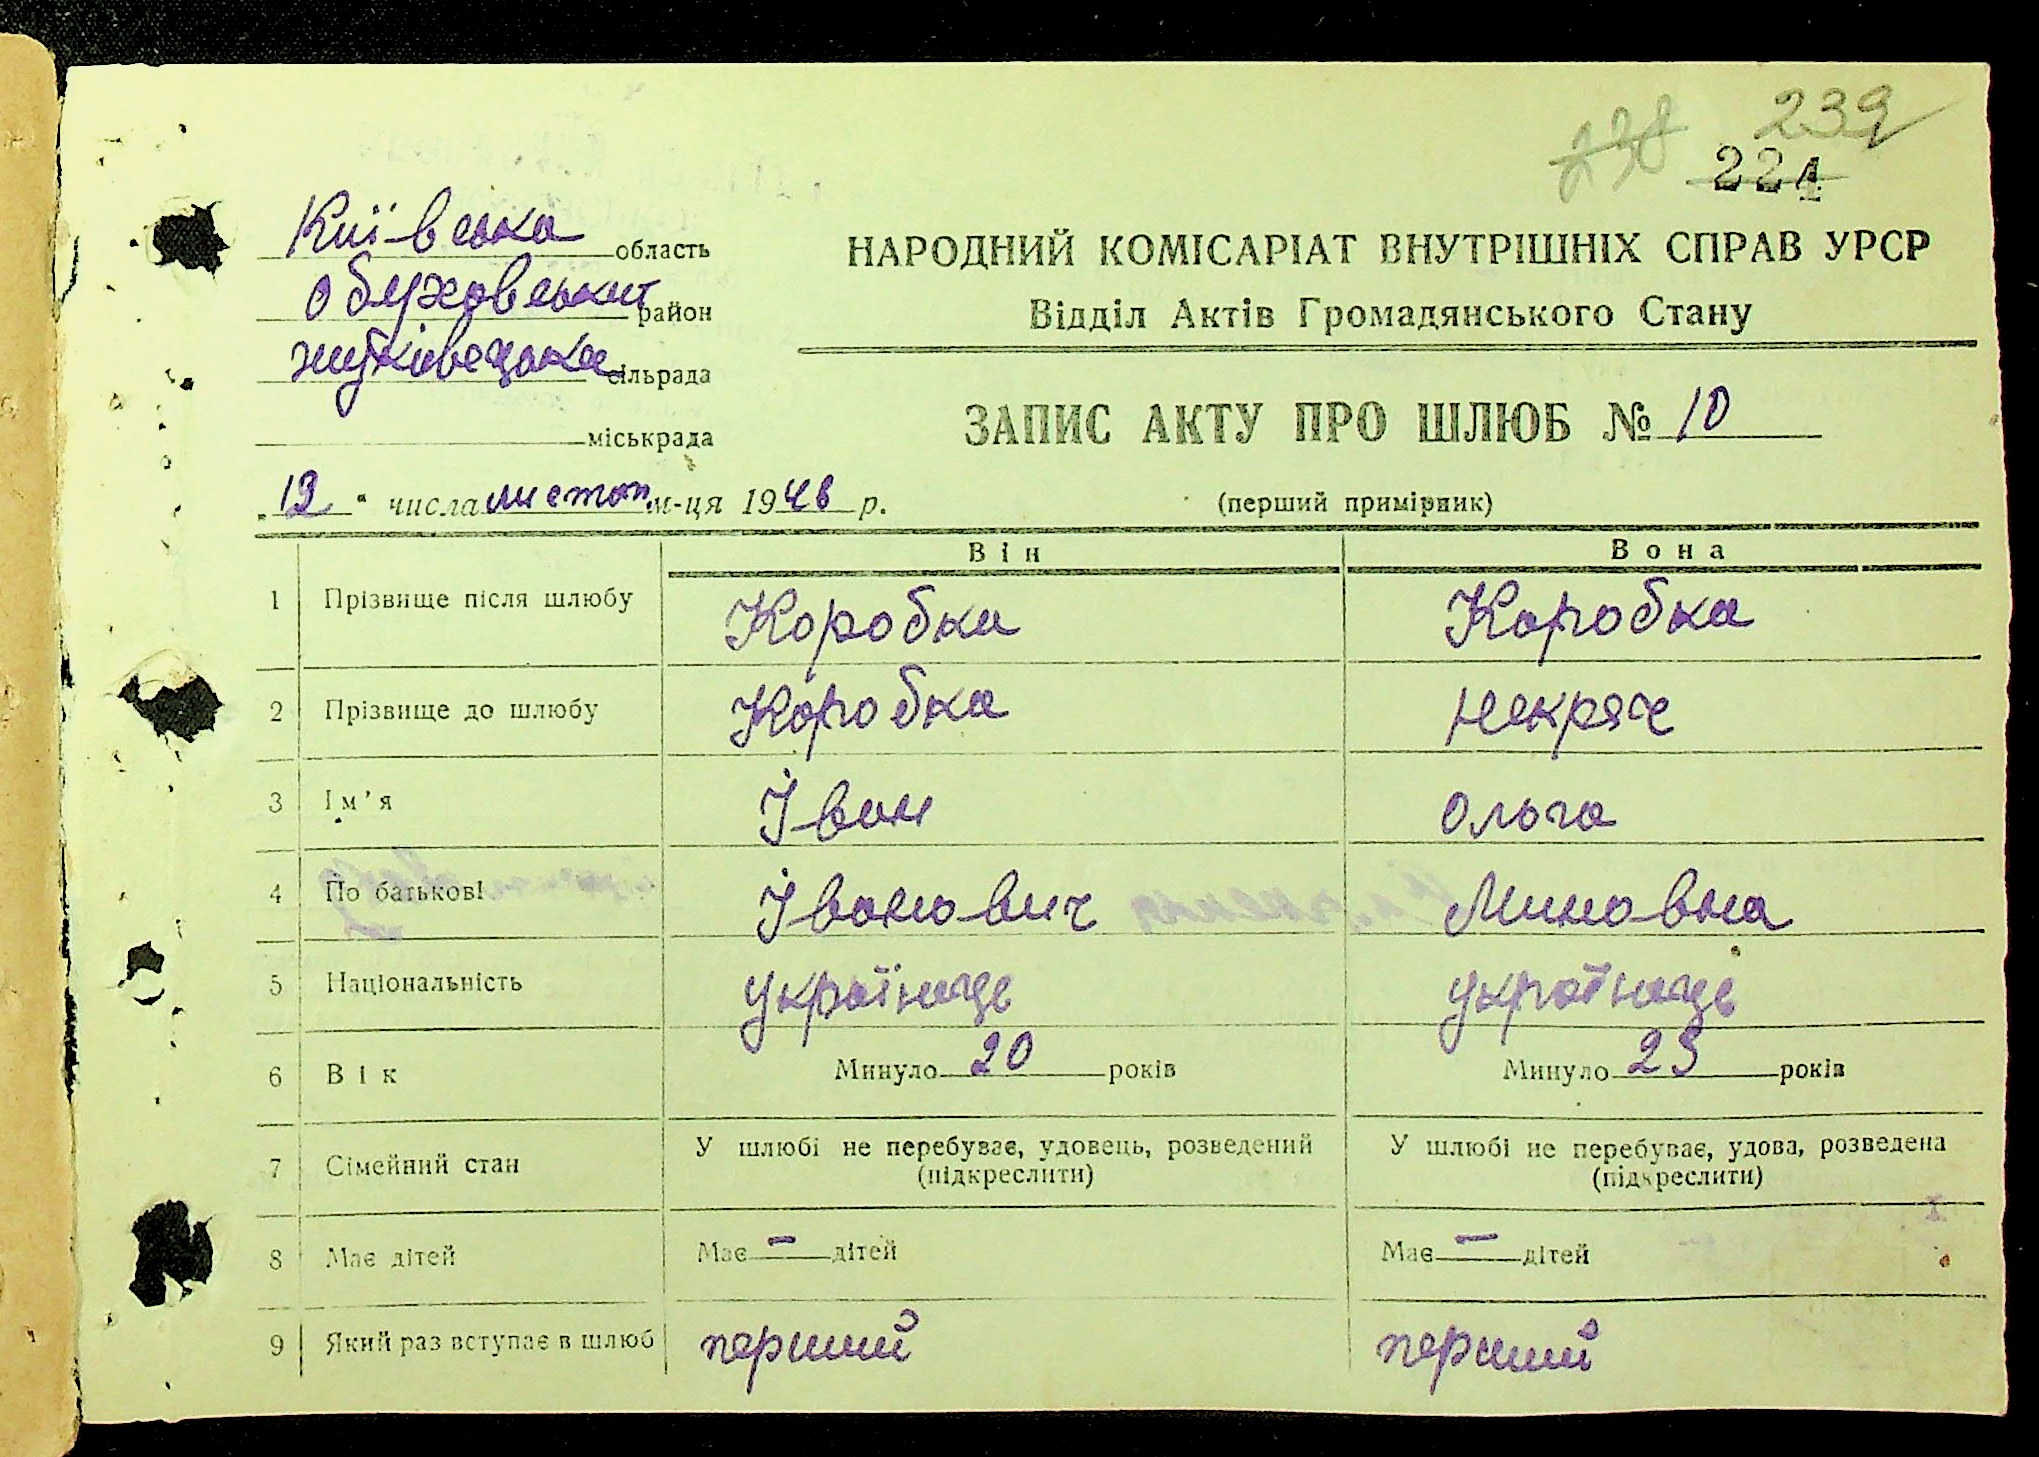 238 239
221
Київська область
Обухівський район
міськрада
НАРОДНИЙ КОМІСАРІАТ ВНУТРІШНІХ СПРАВ УРСР
Відділ Актів Громадянського Стану
ЗАПИС АКТУ ПРО ШЛЮБ № 10
"12" числа листоп. м-ця 1946 р. (перший примірник)
Він Вона
1 Прізвище після шлюбу Коробка Коробка
2 Прізвище до шлюбу Коробка Некряч
3 Ім'я Іван Ольга
4 По батькові Іванович Миновна
5 Національність українець українець
6 Вік Минуло 20 років Минуло 23 років
7 Сімейний стан У шлюбі не перебуває, удовець, розведений (підкреслити) У шлюбі не перебуває, удова, розведена (підкреслити)
8 Має дітей Має — дітей Має — дітей
9 Який раз вступає в шлюб перший перший